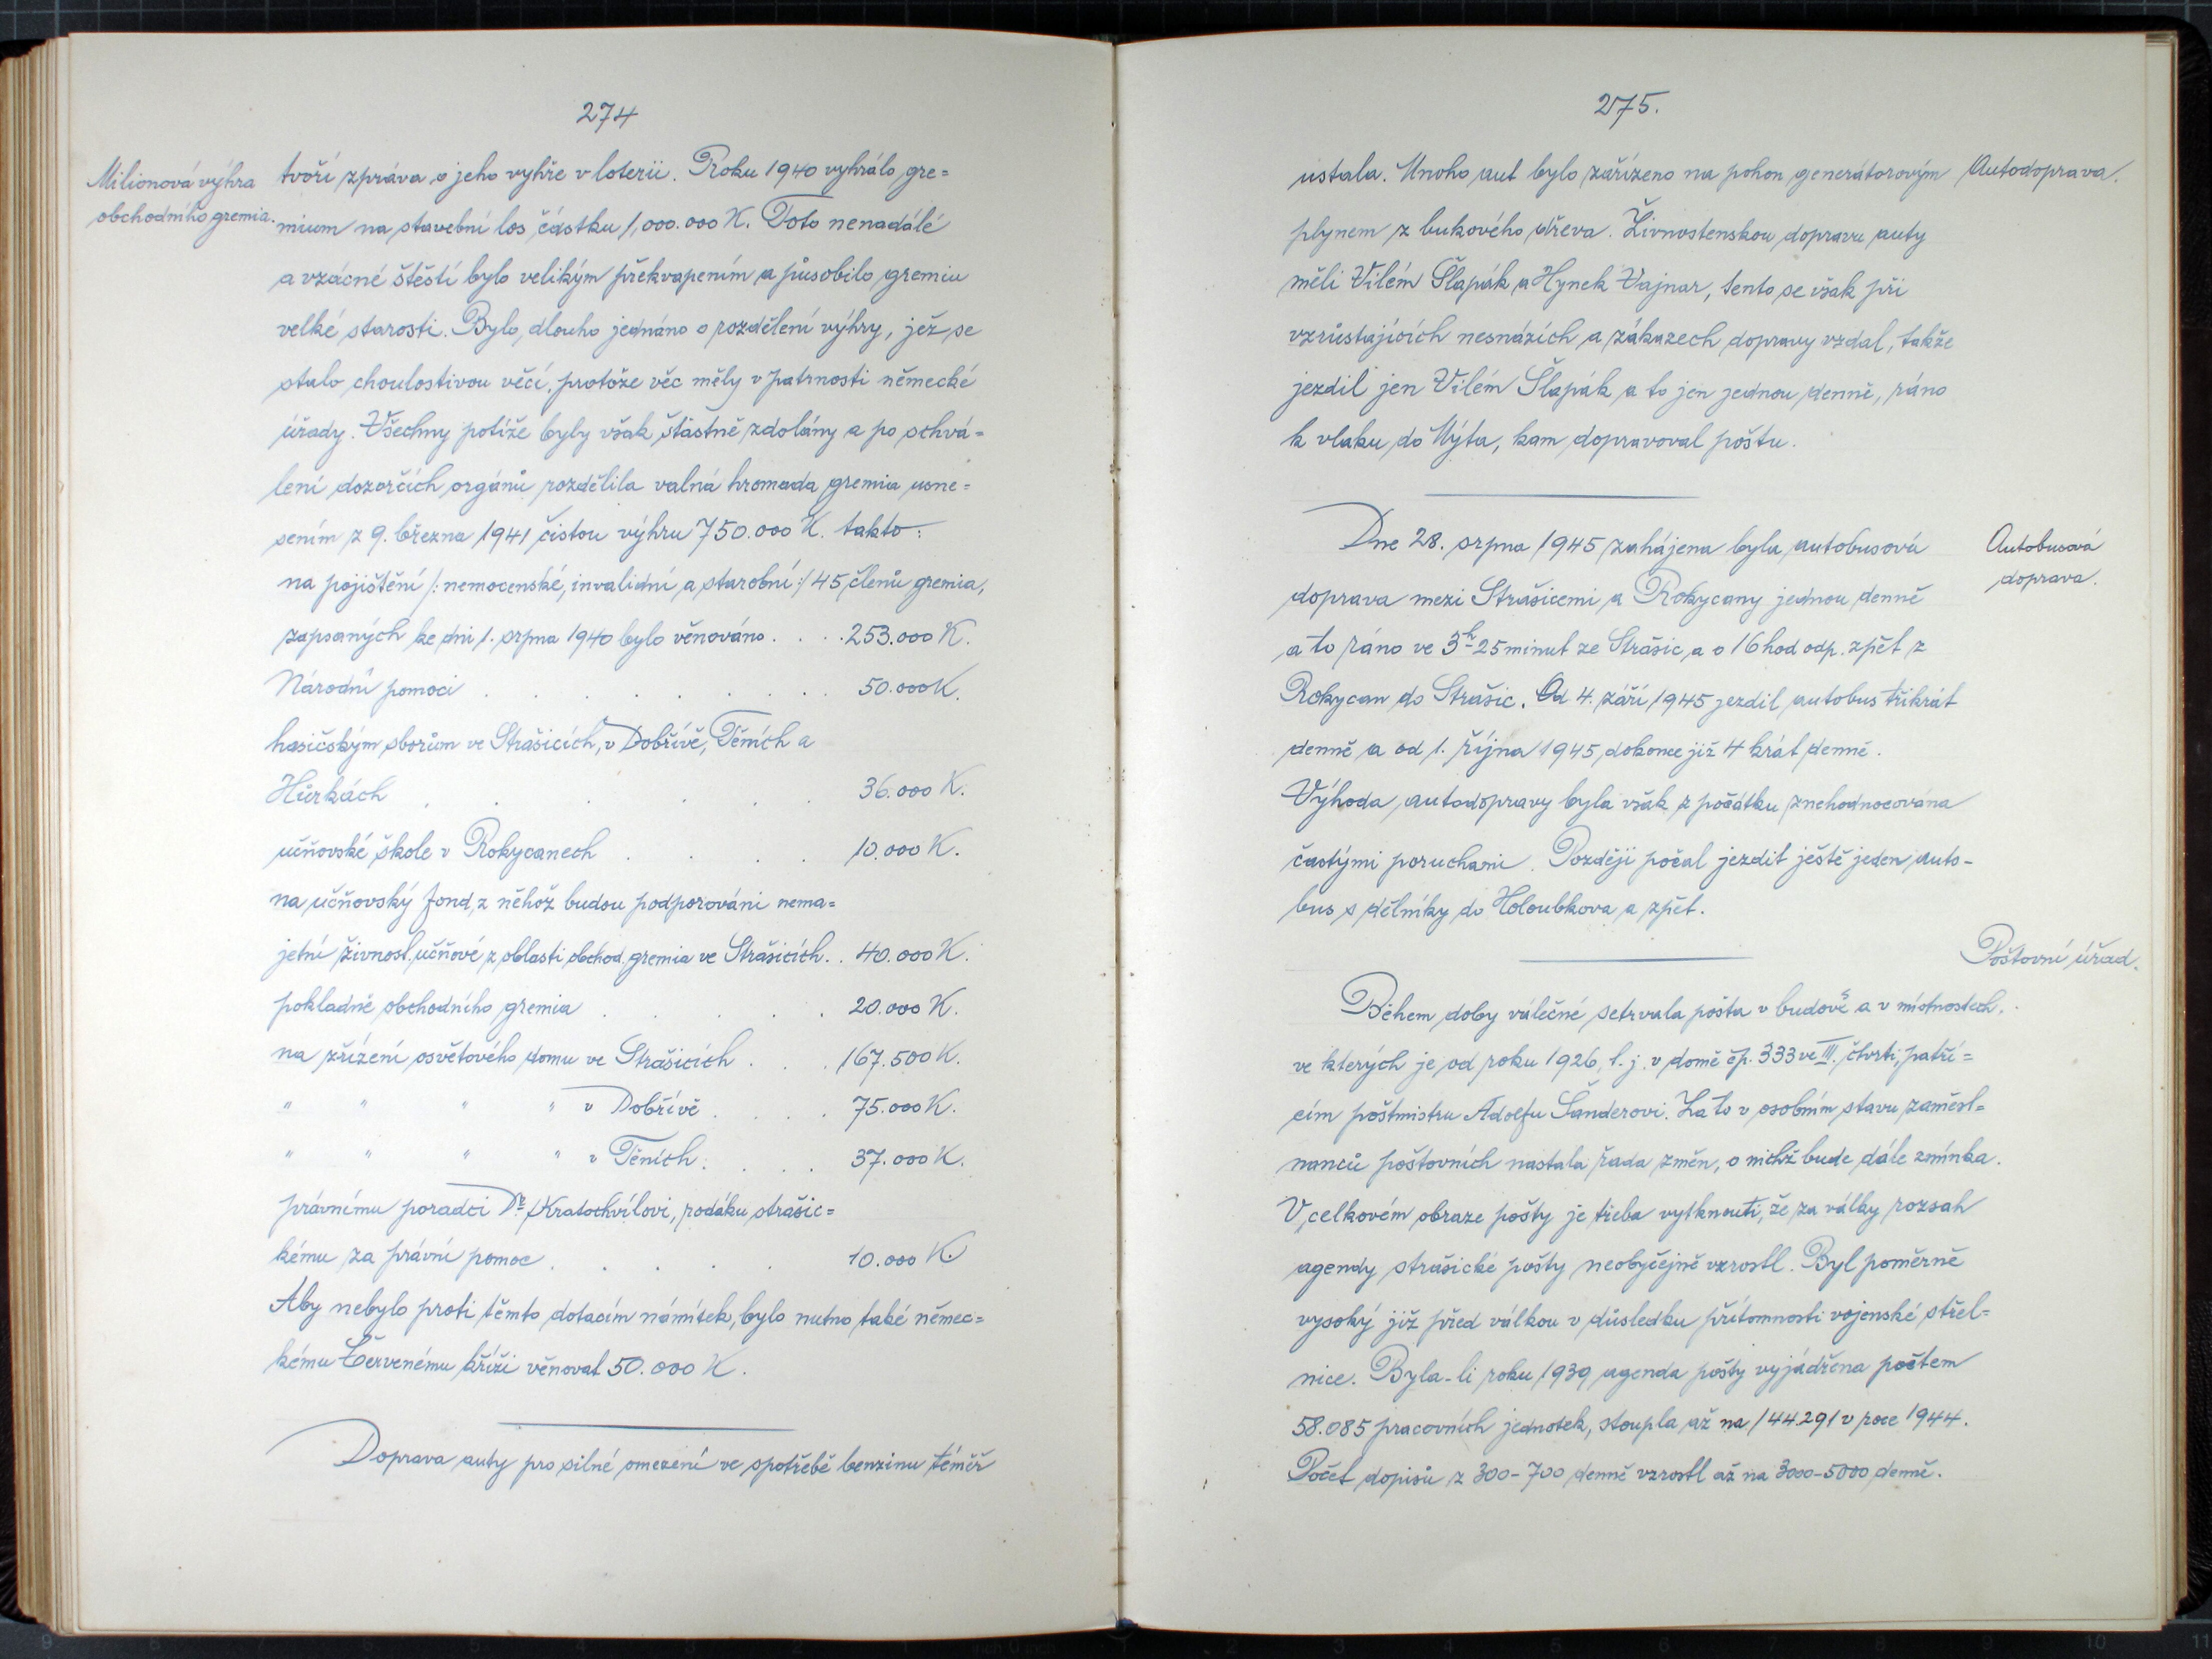 274
Milionová výhra
obchodního gremia.
tvoří zpráva o jeho vyhře v loterii. Roku 1940 vyhrálo gre=
mium na stavební los částku 1,000.000 K. Toto nenadálé
a vzácné štěstí bylo velikým překvapením a působilo gremiu
velké starosti. Bylo dlouho jednáno o rozdělení výhry, jež se
stalo choulostivou věcí, protože věc měly v patrnosti německé
úřady. Všechny potíže byly však šťastně zdolány a po schvá=
lení dozorčích orgánů rozdělila valná hromada gremia usne=
sením z 9. března 1941 čistou výhru 750.000 K. takto:
na pojištění /: nemocenské, invalidní a starobní :/ 45 členů gremia,
zapsaných ke dni 1. srpna 1940 bylo věnováno . . . 253.000 K.
Národní pomoci . . . . . . . . 50.000 K.
hasičským sborům ve Strašicích, v Dobřívě, Těních a
Hůrkách . . . . . . 36.000 K.
učňovské škole v Rokycanech . . . . 10.000 K.
na učňovský fond, z něhož budou podporováni nema=
jetní živnost. učňové z oblasti obchod. gremia ve Strašicích . . 40.000 K.
pokladně obchodního gremia . . . . . 20.000 K.
na zřízení osvětového domu ve Strašicích . . . 167.500 K.
" " " " v Dobřívě . . . . 75.000 K.
" " " " v Těních . . . . 37.000 K.
právnímu poradci Dr. Kratochvílovi, rodáku strašic=
kému za právní pomoc . . . . . 10.000 K.
Aby nebylo proti těmto dotacím námitek, bylo nutno také němec=
kému Červenému kříži věnovat 50.000 K.
Doprava auty pro silné omezení ve spotřebě benzinu téměř
275.
ustala. Mnoho aut bylo zařízeno na pohon generátorovým
Autodoprava.
plynem z bukového dřeva. Živnostenskou dopravu auty
měli Vilém Šlapák a Hynek Vajnar, tento se však při
vzrůstajících nesnázích a zákazech dopravy vzdal, takže
jezdil jen Vilém Šlapák a to jen jednou denně, ráno
k vlaku do Mýta, kam dopravoval poštu.
Dne 28. srpna 1945 zahájena byla autobusová
Autobusová
doprava.
doprava mezi Strašicemi a Rokycany jednou denně
a to ráno ve 3h 25 minut ze Strašic a o 16 hod odp. zpět z
Rokycan do Strašic. Od 4. září 1945 jezdil autobus třikrát
denně a od 1. října 1945 dokonce již 4 krát denně.
Výhoda autodopravy byla však z počátku znehodnocována
častými poruchami. Později počal jezdit ještě jeden auto-
bus s dělníky do Holoubkova a zpět.
Poštovní úřad.
Během doby válečné setrvala pošta v budově a v místnostech,
ve kterých je od roku 1926, t. j. v domě čp. 333 ve III. čtvrti, patří=
cím poštmistru Adolfu Šanderovi. Za to v osobním stavu zaměst=
nanců poštovních nastala řada změn, o nichž bude dále zmínka.
V celkovém obraze pošty je třeba vytknouti, že za války rozsah
agendy strašické pošty neobyčejně vzrostl. Byl poměrně
vysoký již před válkou v důsledku přítomnosti vojenské střel=
nice. Byla-li roku 1939 agenda pošty vyjádřena počtem
58.085 pracovních jednotek, stoupla až na 144291 v roce 1944.
Počet dopisů z 300-700 denně vzrostl až na 3000-5000 denně.